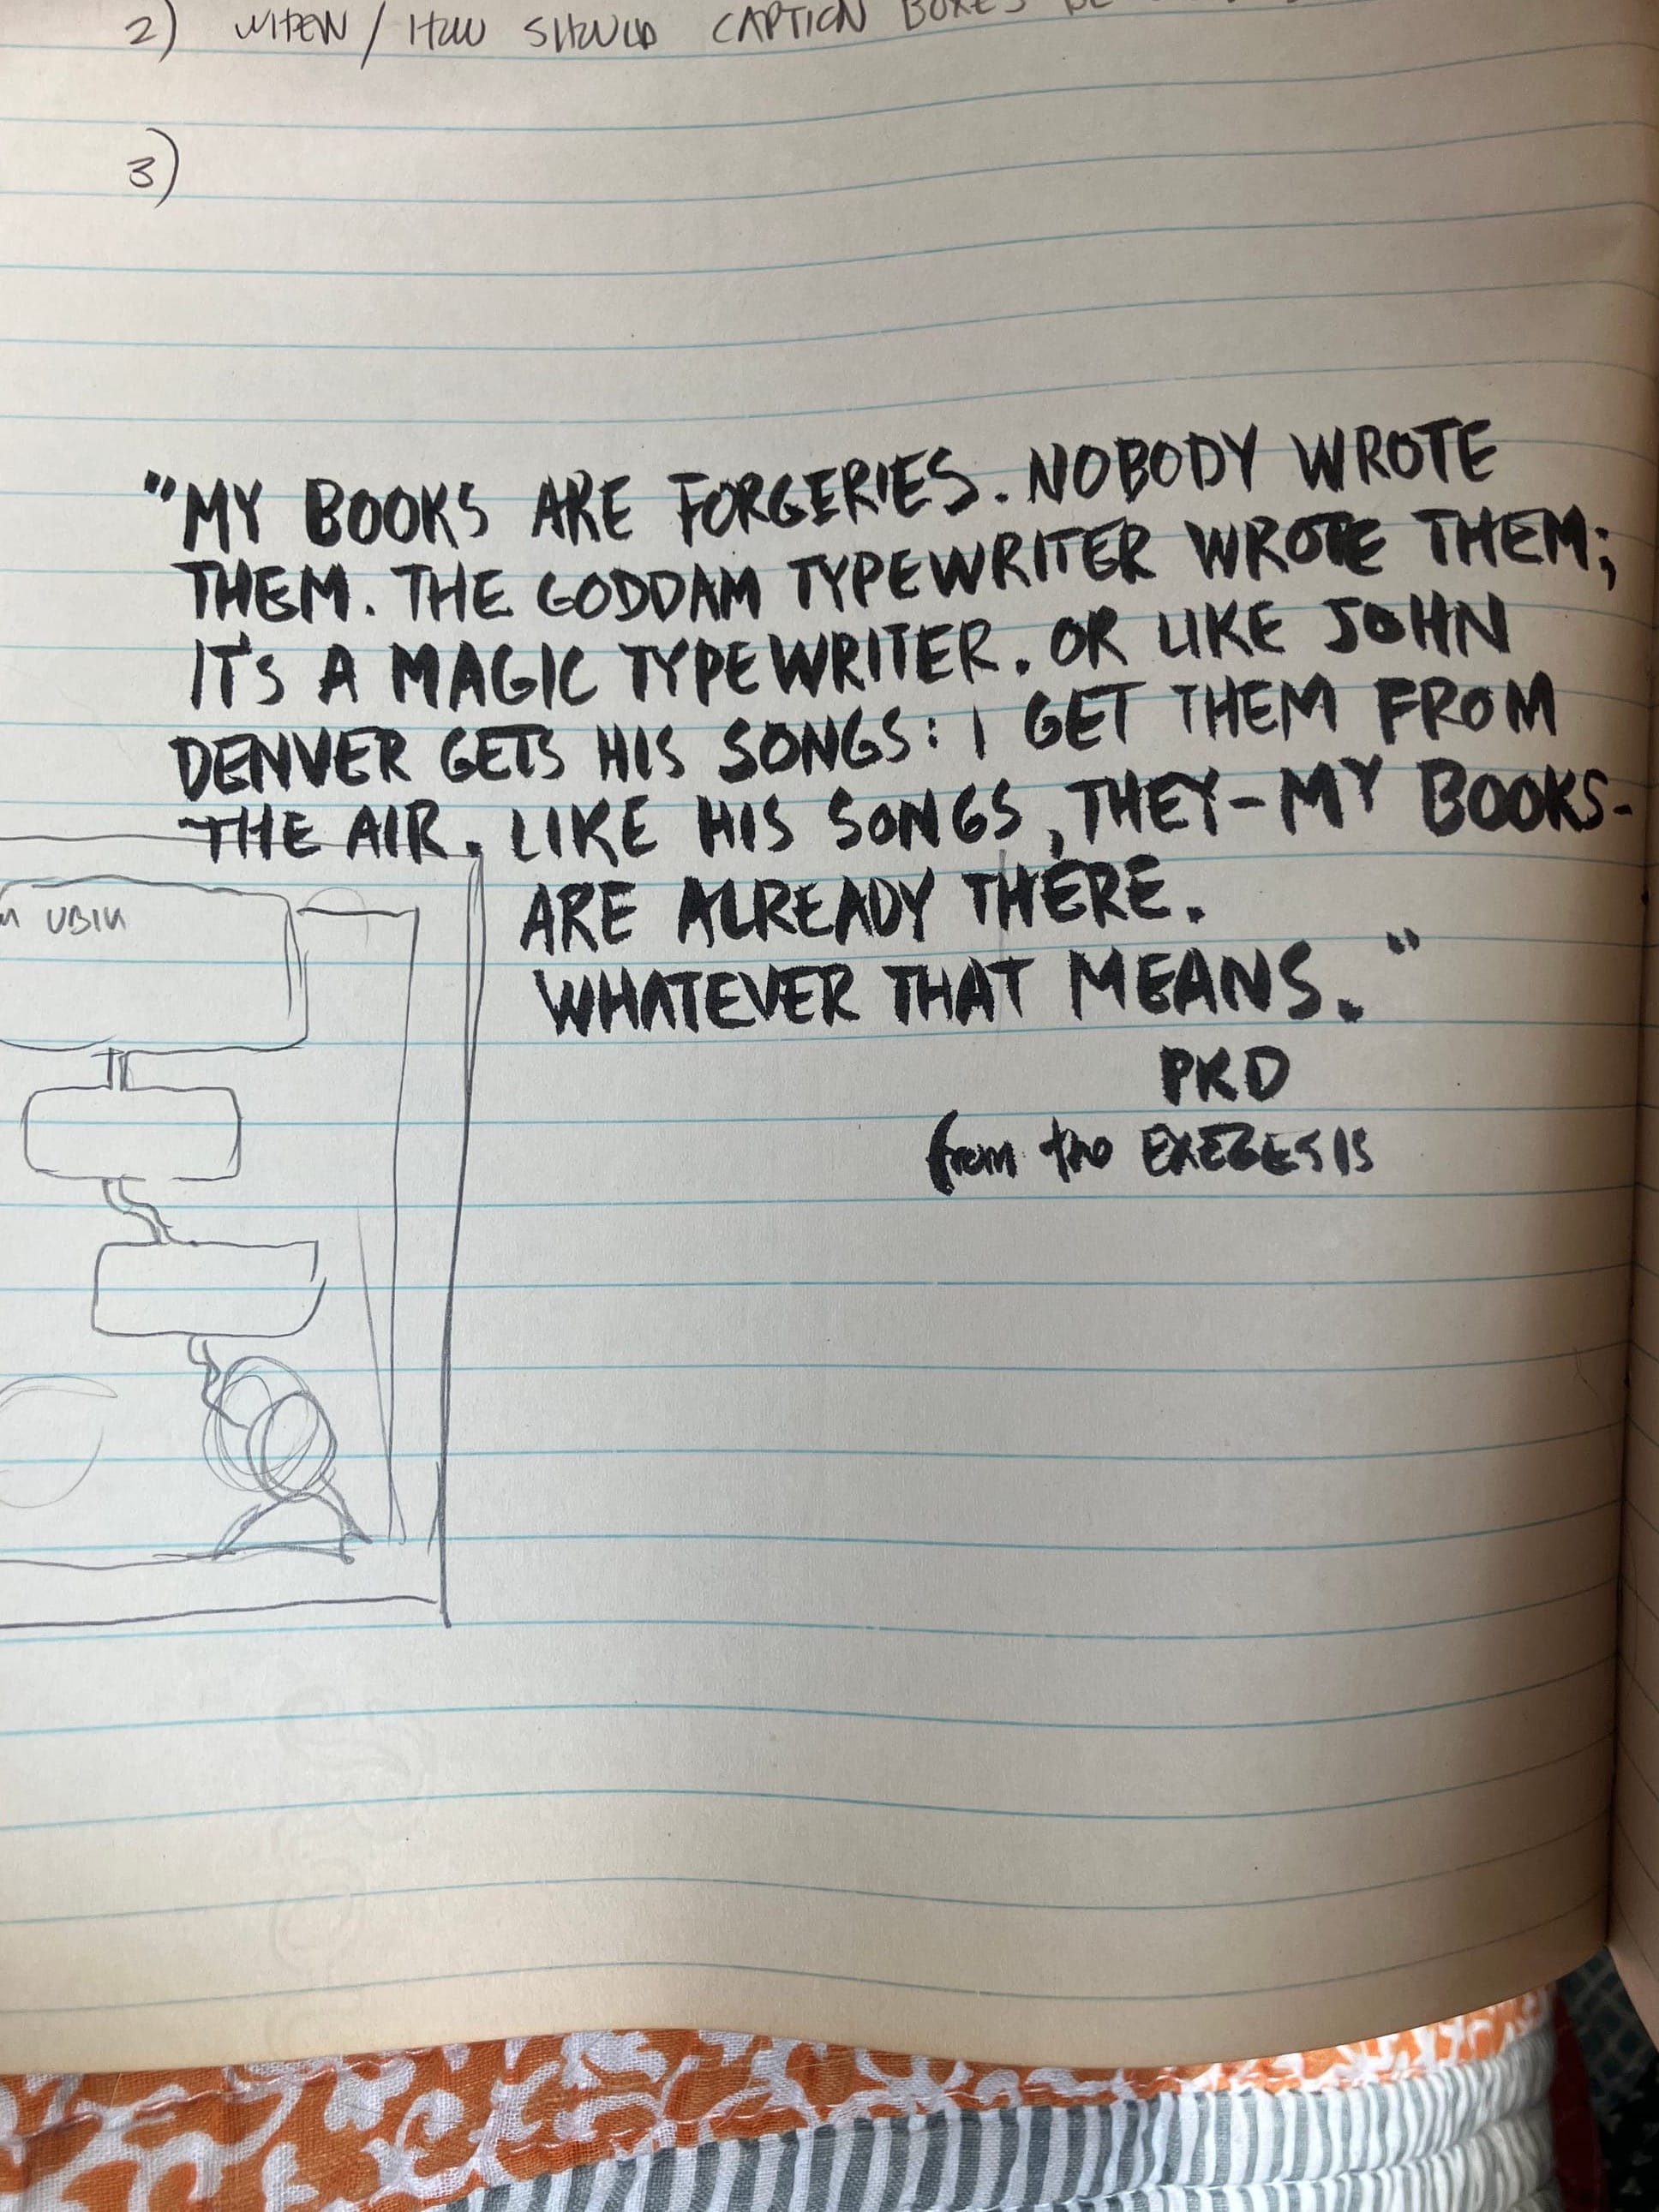 2) WHEN / HOW SHOULD CAPTION BOXES BE
3)
"MY BOOKS ARE FORGERIES. NOBODY WROTE
THEM. THE GODDAM TYPEWRITER WROTE THEM;
IT'S A MAGIC TYPEWRITER. OR LIKE JOHN
DENVER GETS HIS SONGS: I GET THEM FROM
THE AIR. LIKE HIS SONGS, THEY-MY BOOKS-
ARE ALREADY THERE.
WHATEVER THAT MEANS."
PKD
from the EXEGESIS
UBIK